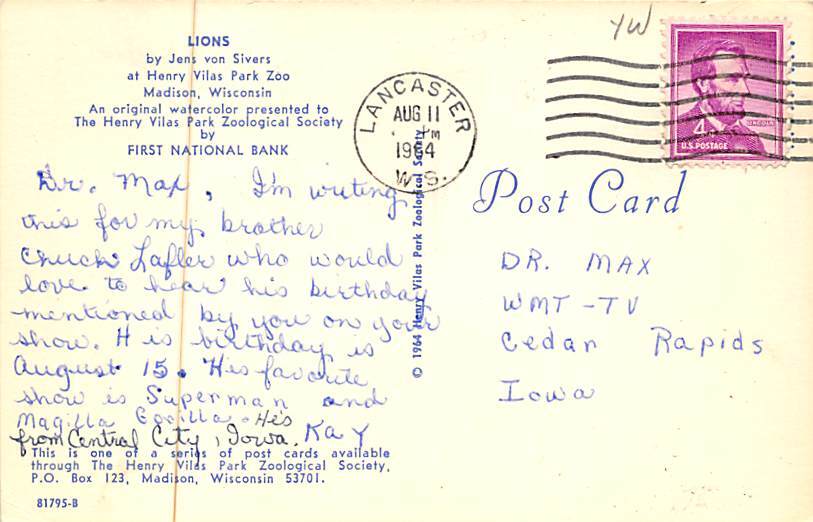 LIONS
by Jens von Sivers
at Henry Vilas Park Zoo
Madison, Wisconsin
An original watercolor presented to
The Henry Vilas Park Zoological Society
by
FIRST NATIONAL BANK
Dr. Max, I'm writing
this for my brother
Chuck Lafler who would
love to hear his birthday
mentioned by you on your
show. His birthday is
August 15. His favorite
show is Superman and
Magilla Gorilla. He's
from Central City, Iowa. Kay
This is one of a series of post cards available
through The Henry Vilas Park Zoological Society,
P.O. Box 123, Madison, Wisconsin 53701.
81795-B
© 1964 Henry Vilas Park Zoological Society
YW
LANCASTER
AUG 11
PM
1964
WIS.
4¢
LINCOLN
U.S. POSTAGE
Post Card
DR. MAX
WMT-TV
Cedar Rapids
Iowa